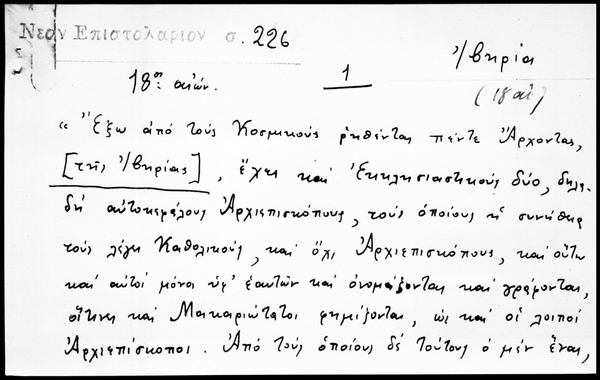 Νεον Επιστολαριον σ. 226
Ἰβηρία
18ος αἰών.
1
(18 αἰ)
« Ἔξω ἀπό τούς Κοσμικούς ῥηθέντας πέντε Ἄρχοντας,
[τῆς Ἰβηρίας], ἔχει καί Ἐκκλησιαστικούς δύο, δηλα-
δή αὐτοκεφάλους Ἀρχιεπισκόπους, τούς ὁποίους ἡ συνήθεια
τούς λέγει Καθολικούς, καί ὄχι Ἀρχιεπισκόπους, καί οὕτω
καί αὐτοί μόνοι ὑφ' ἑαυτῶν καί ὀνομάζονται καί γράφονται,
οἵτινες καί Μακαριώτατοι φημίζονται, ὡς καί οἱ λοιποί
Ἀρχιεπίσκοποι. Ἀπό τούς ὁποίους δέ τούτους ὁ μέν ἕνας,